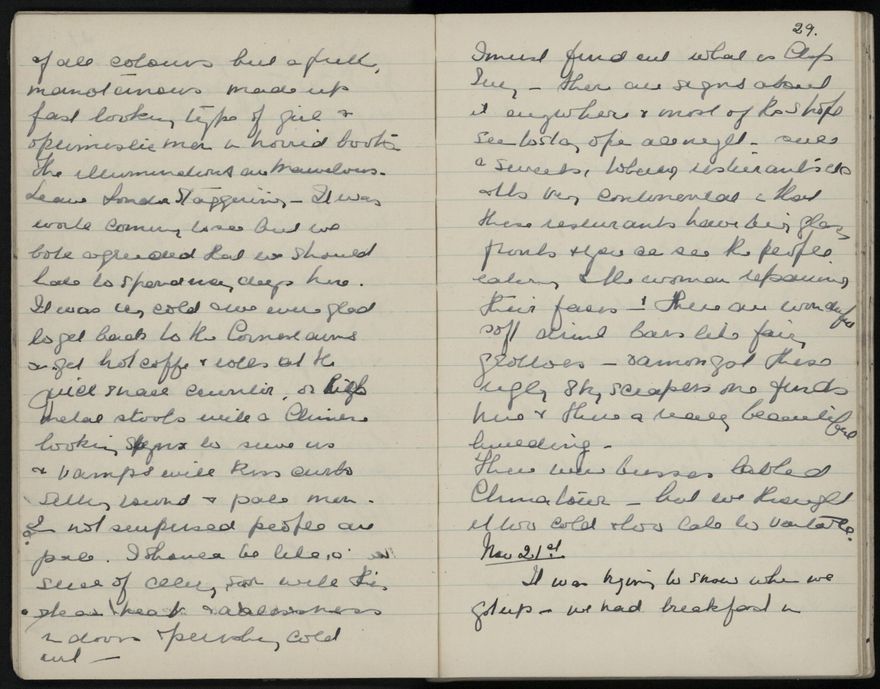 of all colours but a
monotonous made up
fast looking type of girl &
optimistic men in horrid boots
The illuminations are marvellous.
Leave London staggering - It was
worth coming to see but we
both agreed that we should
hate to spend many days here.
It was very cold & we were glad
to get back to the
& get hot coffee & rolls at the
quick snack counter, on high
metal stools with a Chinese
looking to serve us
& vamps with kiss curls
sitting round & pale men.
I'm not surprised people are
pale. I should be like a
stick of celery, with this
steam heat & airlessness
in doors & perishing cold
out -
29.
I must find out what is Chop
Suey - there are signs about
it everywhere & most of the shops
seem to stay open all night - such
as sweets, tobacco, restaurants etc
It's very continental in that
these restaurants have big glass
fronts & you can see the people
eating & the women repairing
their faces - ! There are wonderful
soft drink bars like fairy
grottoes - & amongst these
ugly sky scrapers one finds
here & there a really beautiful
building -
There were busses labled
Chinatown - but we thought
it too cold & too late to venture.
Nov 21st
It was trying to snow when we
got up - we had breakfast in